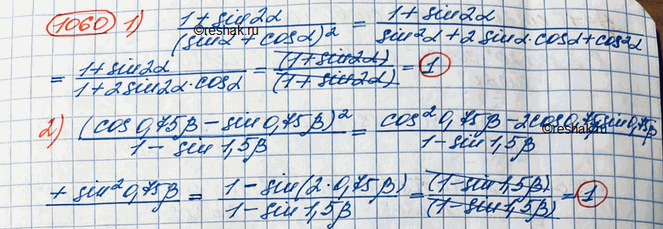 1060 1) (1+sin2α)/(sinα+cosα)² = (1+sin2α)/(sin²α+2sinα·cosα+cos²α)
©reshak.ru
= (1+sin2α)/(1+2sin2α·cosα) = (1+sin2α)/(1+sin2α) = 1
2) (cos0,75β−sin0,75β)²/(1−sin1,5β) = (cos²0,75β−2cos0,75βsin0,75β)/(1−sin1,5β)
©reshak.ru
+sin²0,75β = (1−sin(2·0,75β))/(1−sin1,5β) = (1−sin1,5β)/(1−sin1,5β) = 1